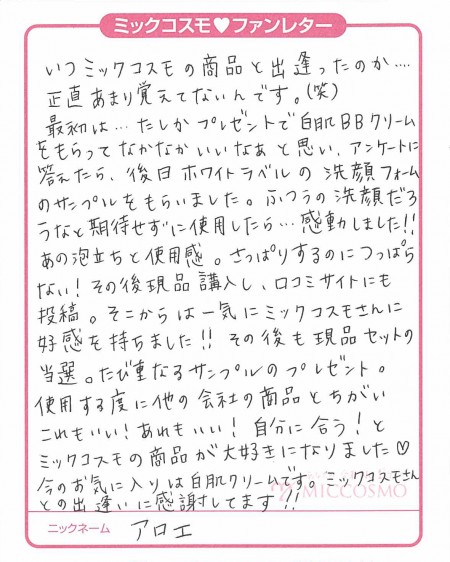 ミックコスモ♥ファンレター
いつミックコスモの商品と出逢ったのか....
正直あまり覚えてないんです。(笑)
最初は…たしかプレゼントで白肌BBクリーム
をもらってなかなかいいなぁと思い、アンケートに
答えたら、後日ホワイトラベルの洗顔フォーム
のサンプルをもらいました。ふつうの洗顔だろ
うなと期待せずに使用したら…感動しました!!
あの泡立ちと使用感。さっぱりするのにつっぱら
ない!その後現品購入し、口コミサイトにも
投稿。そこからは一気にミックコスモさんに
好感を持ちました!!その後も現品セットの
当選。たび重なるサンプルのプレゼント。
使用する度に他の会社の商品とちがい
これもいい!あれもいい!自分に合う!と
ミックコスモの商品が大好きになりました♡
今のお気に入りは白肌クリームです。ミックコスモさん
との出逢いに感謝してます!!
MICCOSMO
ニックネーム アロエ